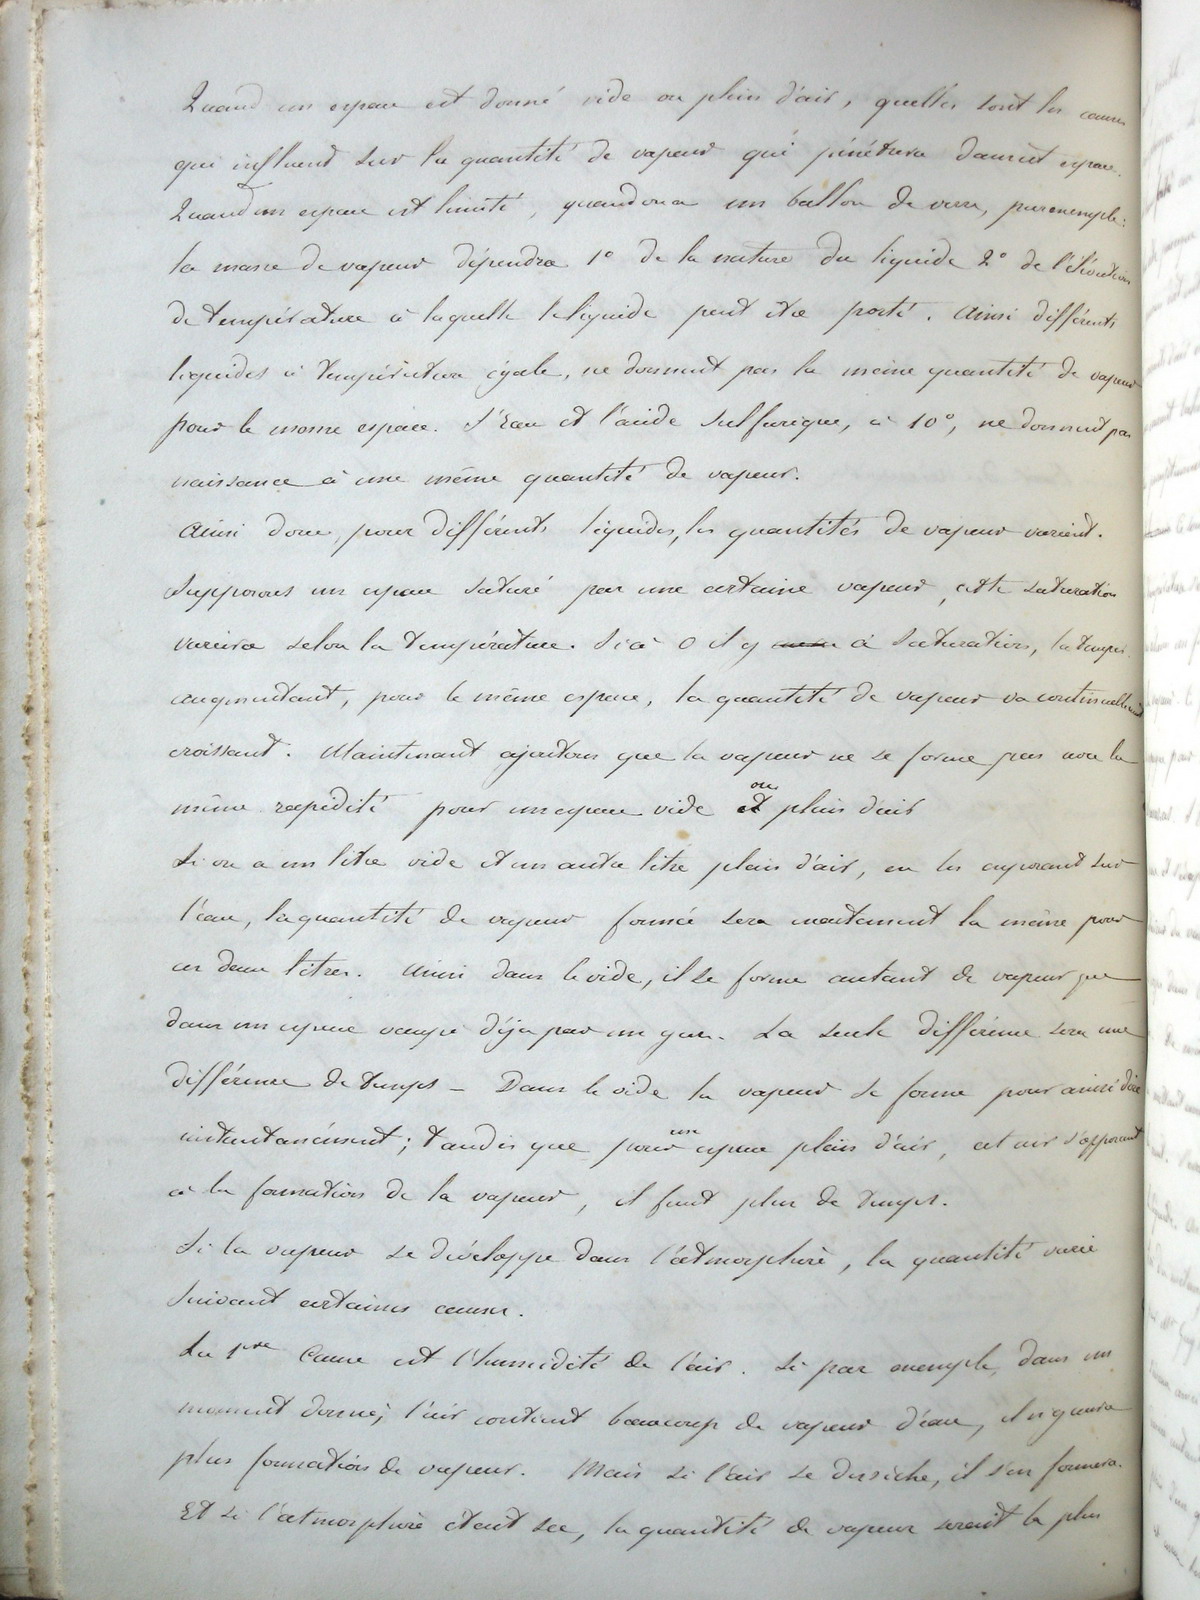 Quand un espace est donné vide ou plein d'air, quelles sont les causes
qui influent sur la quantité de vapeur qui pénétrera dans cet espace.
Quand un espace est limité, quand on a un ballon de verre, par exemple:
la masse de vapeur dépendra 1° de la nature du liquide 2° de l'élévation
de température à laquelle le liquide peut être porté. Ainsi différents
liquides à température égale, ne donnent pas la même quantité de vapeur
pour le même espace. L'Eau et l'acide sulfurique, à 10°, ne donnent pas
naissance à une même quantité de vapeur.
Ainsi donc, pour différents liquides, les quantités de vapeur varient.
Supposons un espace saturé par une certaine vapeur, cette saturation
variera selon la température. Si à 0 il y a saturation, la temper.
augmentant, pour le même espace, la quantité de vapeur va continuellement
croissant. Maintenant ajoutons que la vapeur ne se forme pas avec la
même rapidité pour un espace vide ou plein d'air
Si on a un litre vide et un autre litre plein d'air, en les exposant sur
l'eau, la quantité de vapeur formée sera exactement la même pour
ces deux litres. Ainsi dans le vide, il se forme autant de vapeur que
dans un espace occupé déja par un gaz. La seule différence sera une
différence de temps - Dans le vide la vapeur se forme pour ainsi dire
instantanément; tandis que pour un espace plein d'air, cet air s'opposant
à la formation de la vapeur, il faut plus de temps.
Si la vapeur se développe dans l'atmosphère, la quantité varie
suivant certaines causes.
La 1re cause est l'humidité de l'air. Si par exemple, dans un
moment donné, l'air contient beaucoup de vapeur d'eau, il n'y aura
plus formation de vapeur. Mais si l'air se dessèche, il s'en formera.
Et si l'atmosphère était sec, la quantité de vapeur serait la plus